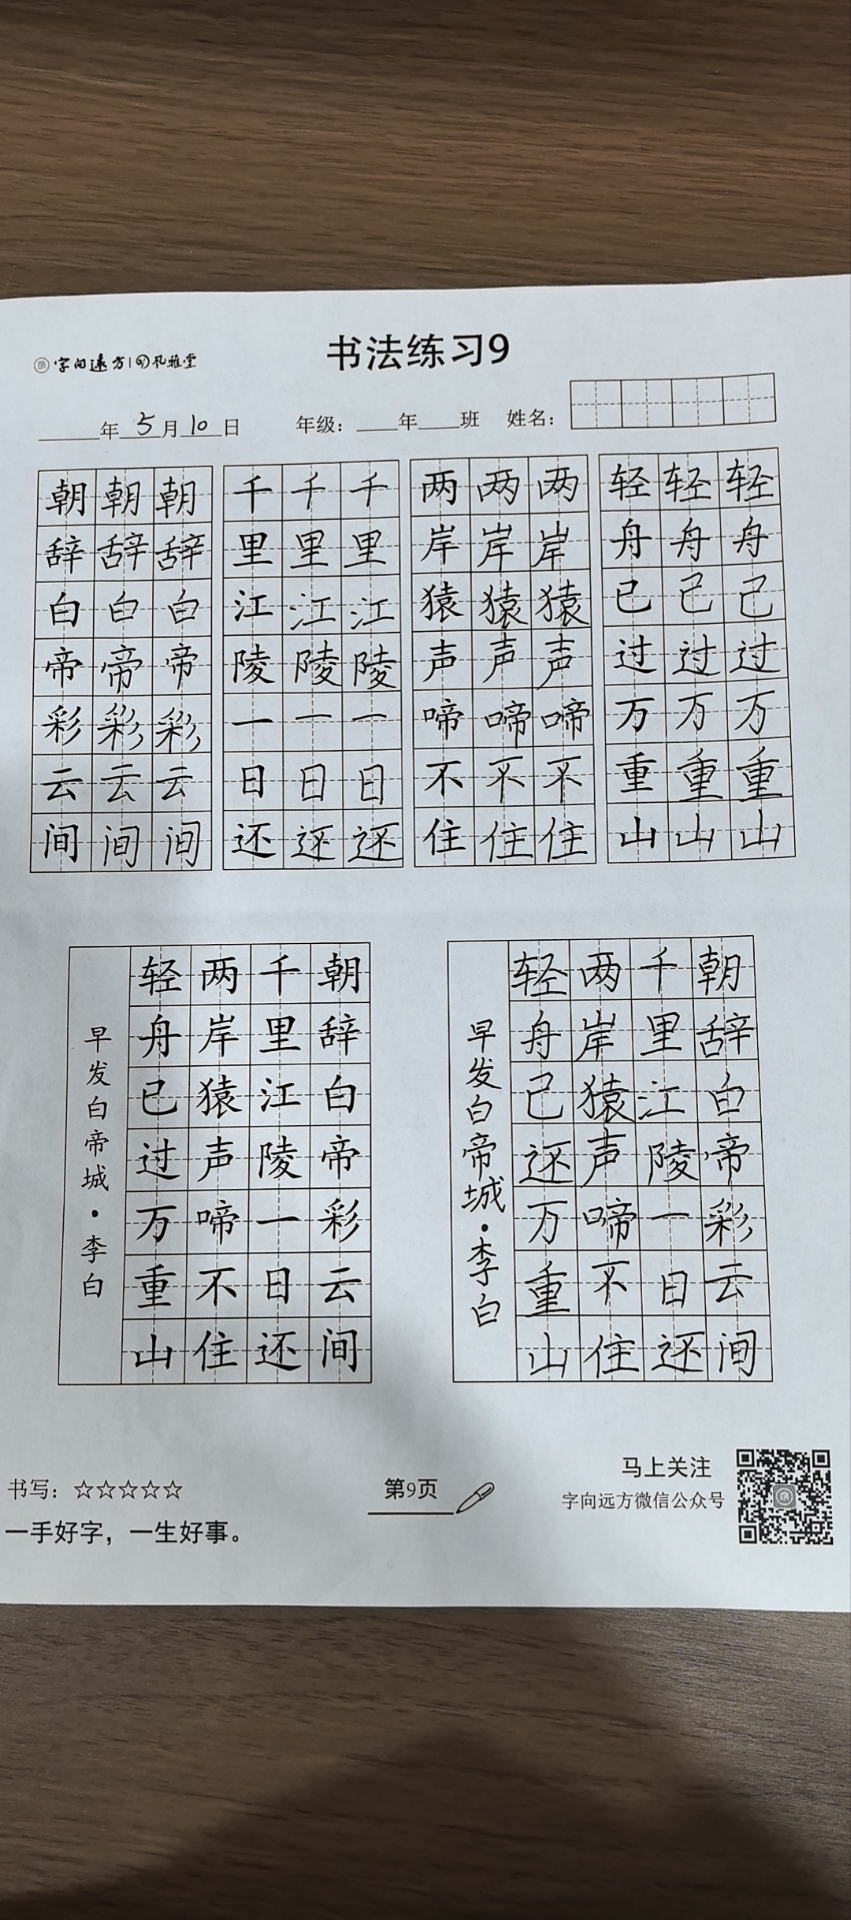 字向遠方 | 孔雅堂
书法练习9
年 5 月 10 日 年级： 年 班 姓名：
朝辞白帝彩云间
朝辞白帝彩云间
朝辞白帝彩云间
千里江陵一日还
千里江陵一日还
千里江陵一日还
两岸猿声啼不住
两岸猿声啼不住
两岸猿声啼不住
轻舟已过万重山
轻舟己过万重山
轻舟己过万重山
朝辞白帝彩云间
千里江陵一日还
两岸猿声啼不住
轻舟已过万重山
早发白帝城·李白
朝辞白啼彩云间
千里江陵一日还
两岸猿声啼不住
轻舟己还万重山
早发白帝城·李白
书写：☆☆☆☆☆
一手好字，一生好事。
第9页
马上关注
字向远方微信公众号